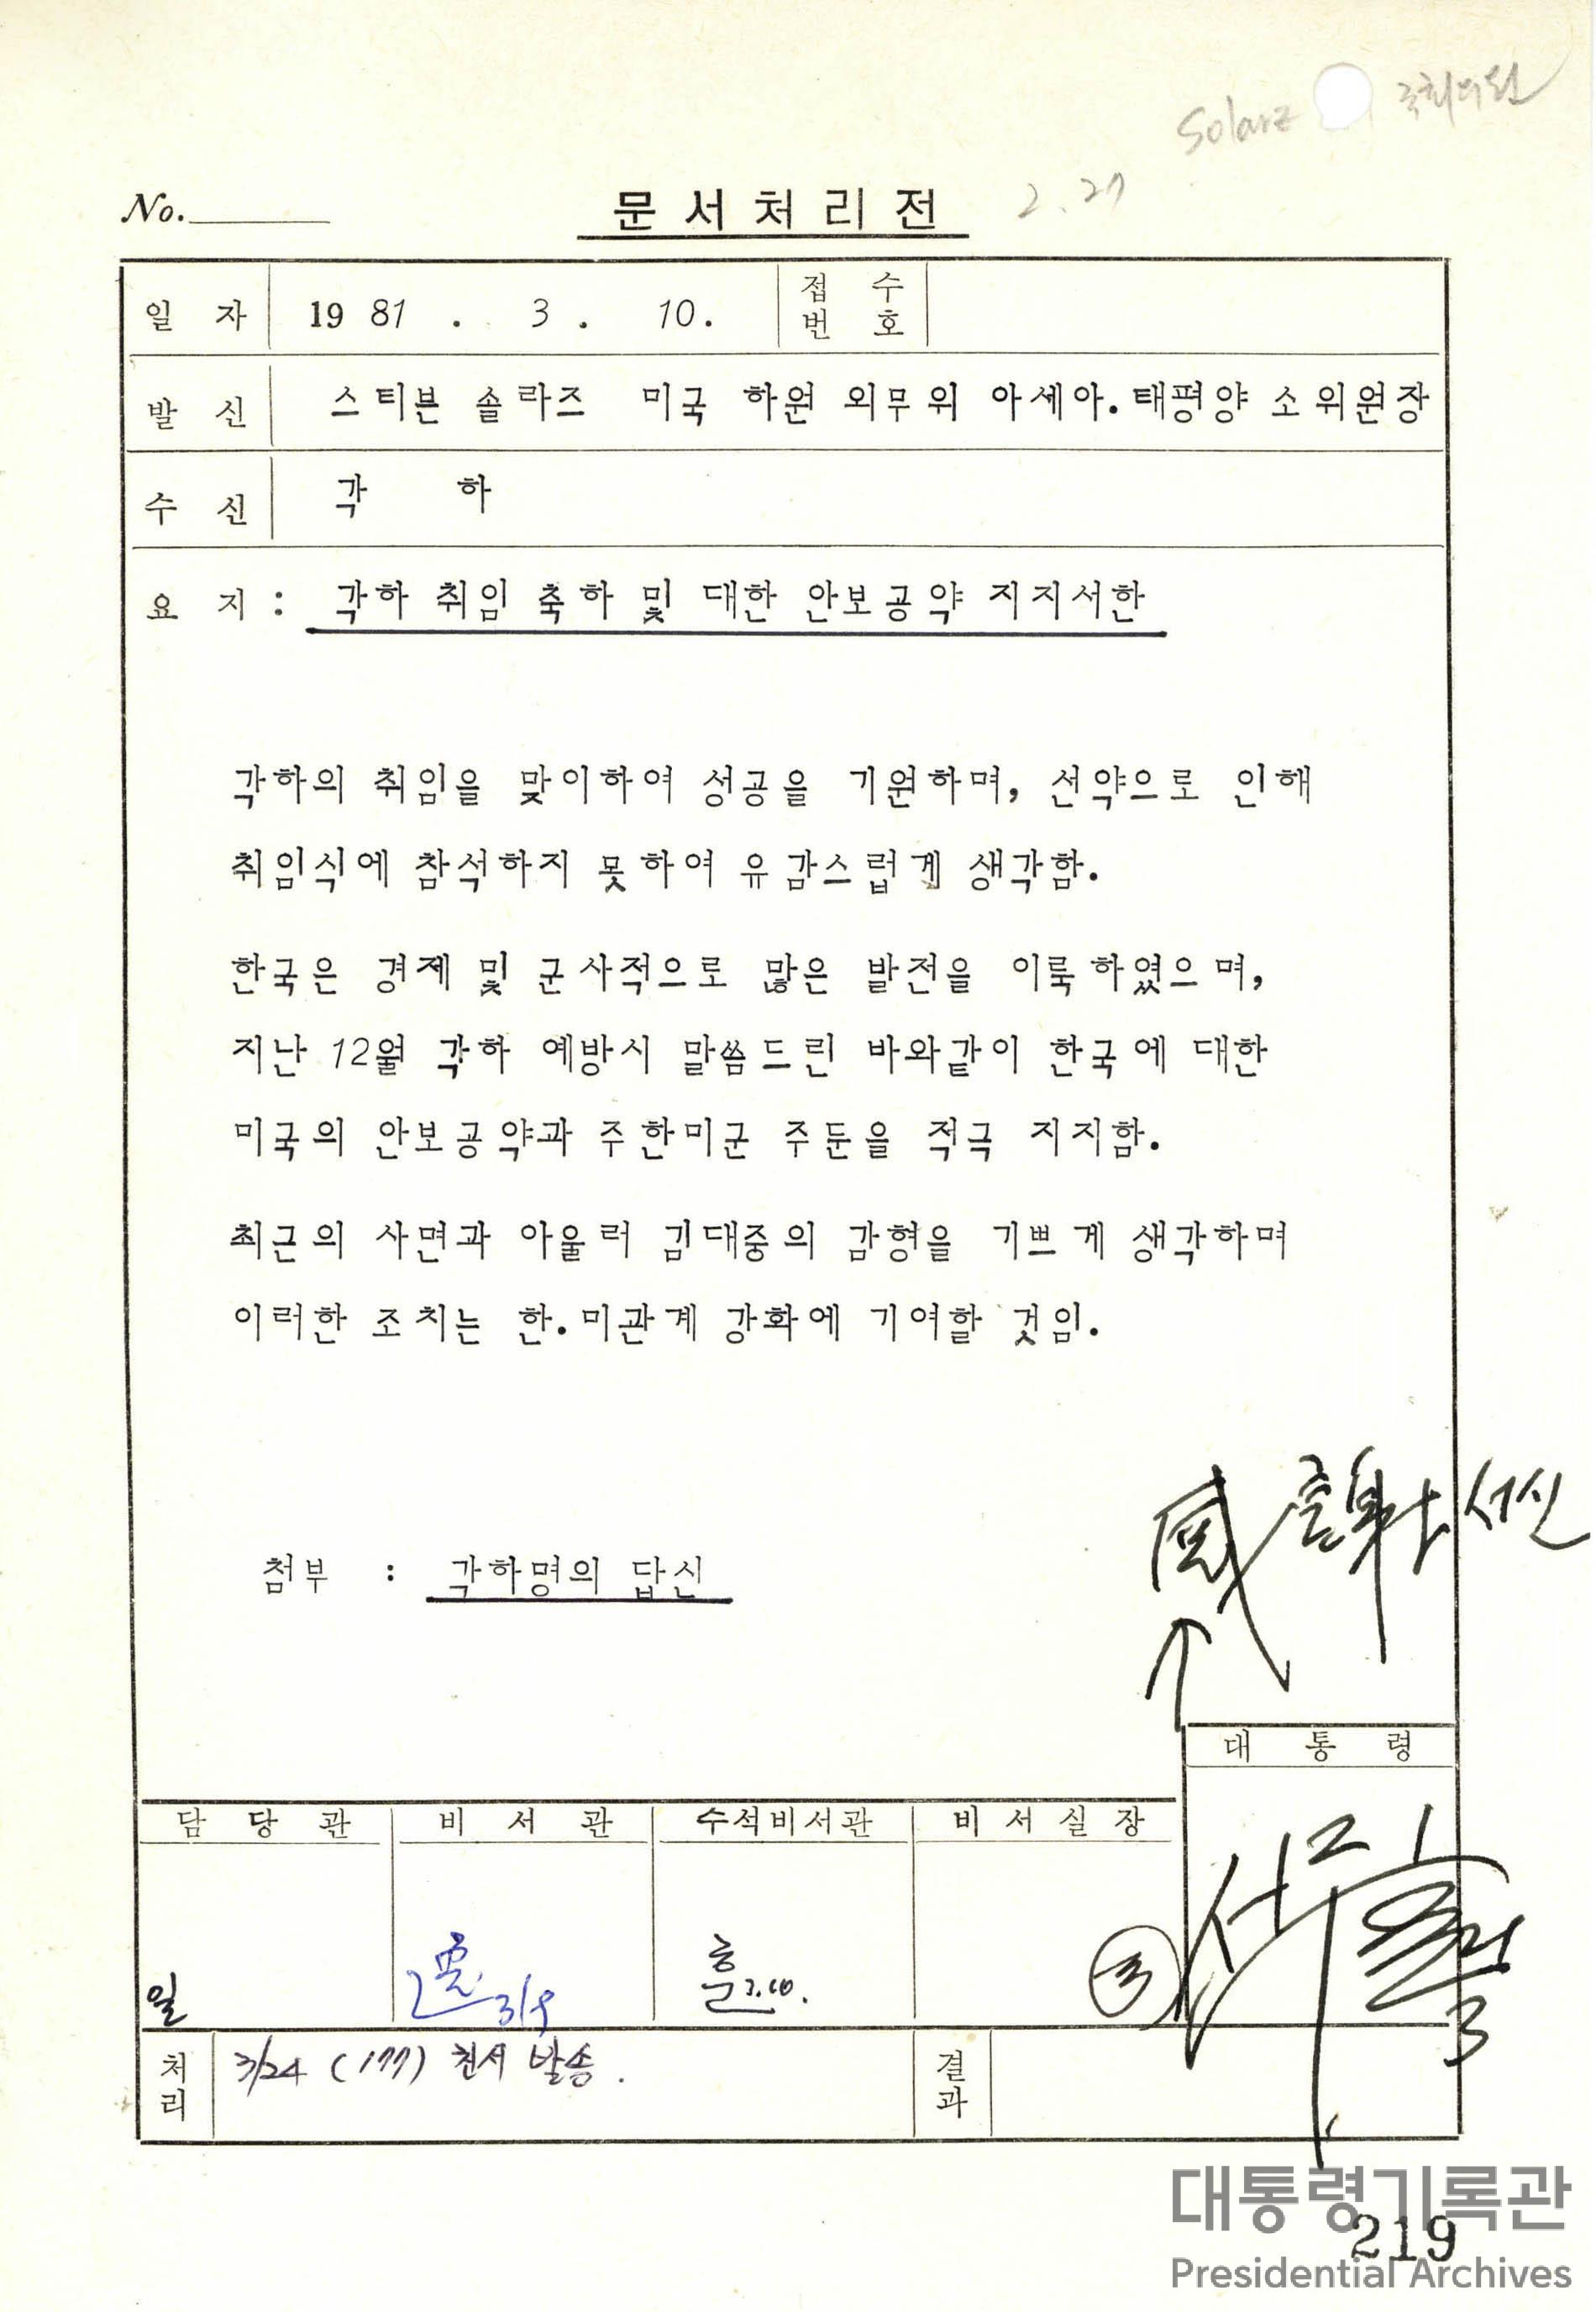 Solarz 국회의원
No.
문서처리전 2.27
일 자 1981 . 3 . 10. 접수번호
발 신 스티븐 솔라즈 미국 하원 외무위 아세아.태평양 소위원장
수 신 각 하
요 지 : 각하 취임 축하 및 대한 안보공약 지지서한
각하의 취임을 맞이하여 성공을 기원하며, 선약으로 인해
취임식에 참석하지 못하여 유감스럽게 생각함.
한국은 경제 및 군사적으로 많은 발전을 이룩하였으며,
지난 12월 각하 예방시 말씀드린 바와같이 한국에 대한
미국의 안보공약과 주한미군 주둔을 적극 지지함.
최근의 사면과 아울러 김대중의 감형을 기쁘게 생각하며
이러한 조치는 한.미관계 강화에 기여할 것임.
感謝 서신
첨부 : 각하명의 답신
↑
대 통 령
담 당 관 비 서 관 수석비서관 비 서 실 장
일 3/9 훈 3.10.
처리 3/24 (177) 친서 발송. 결과
대통령기록관
219
Presidential Archives